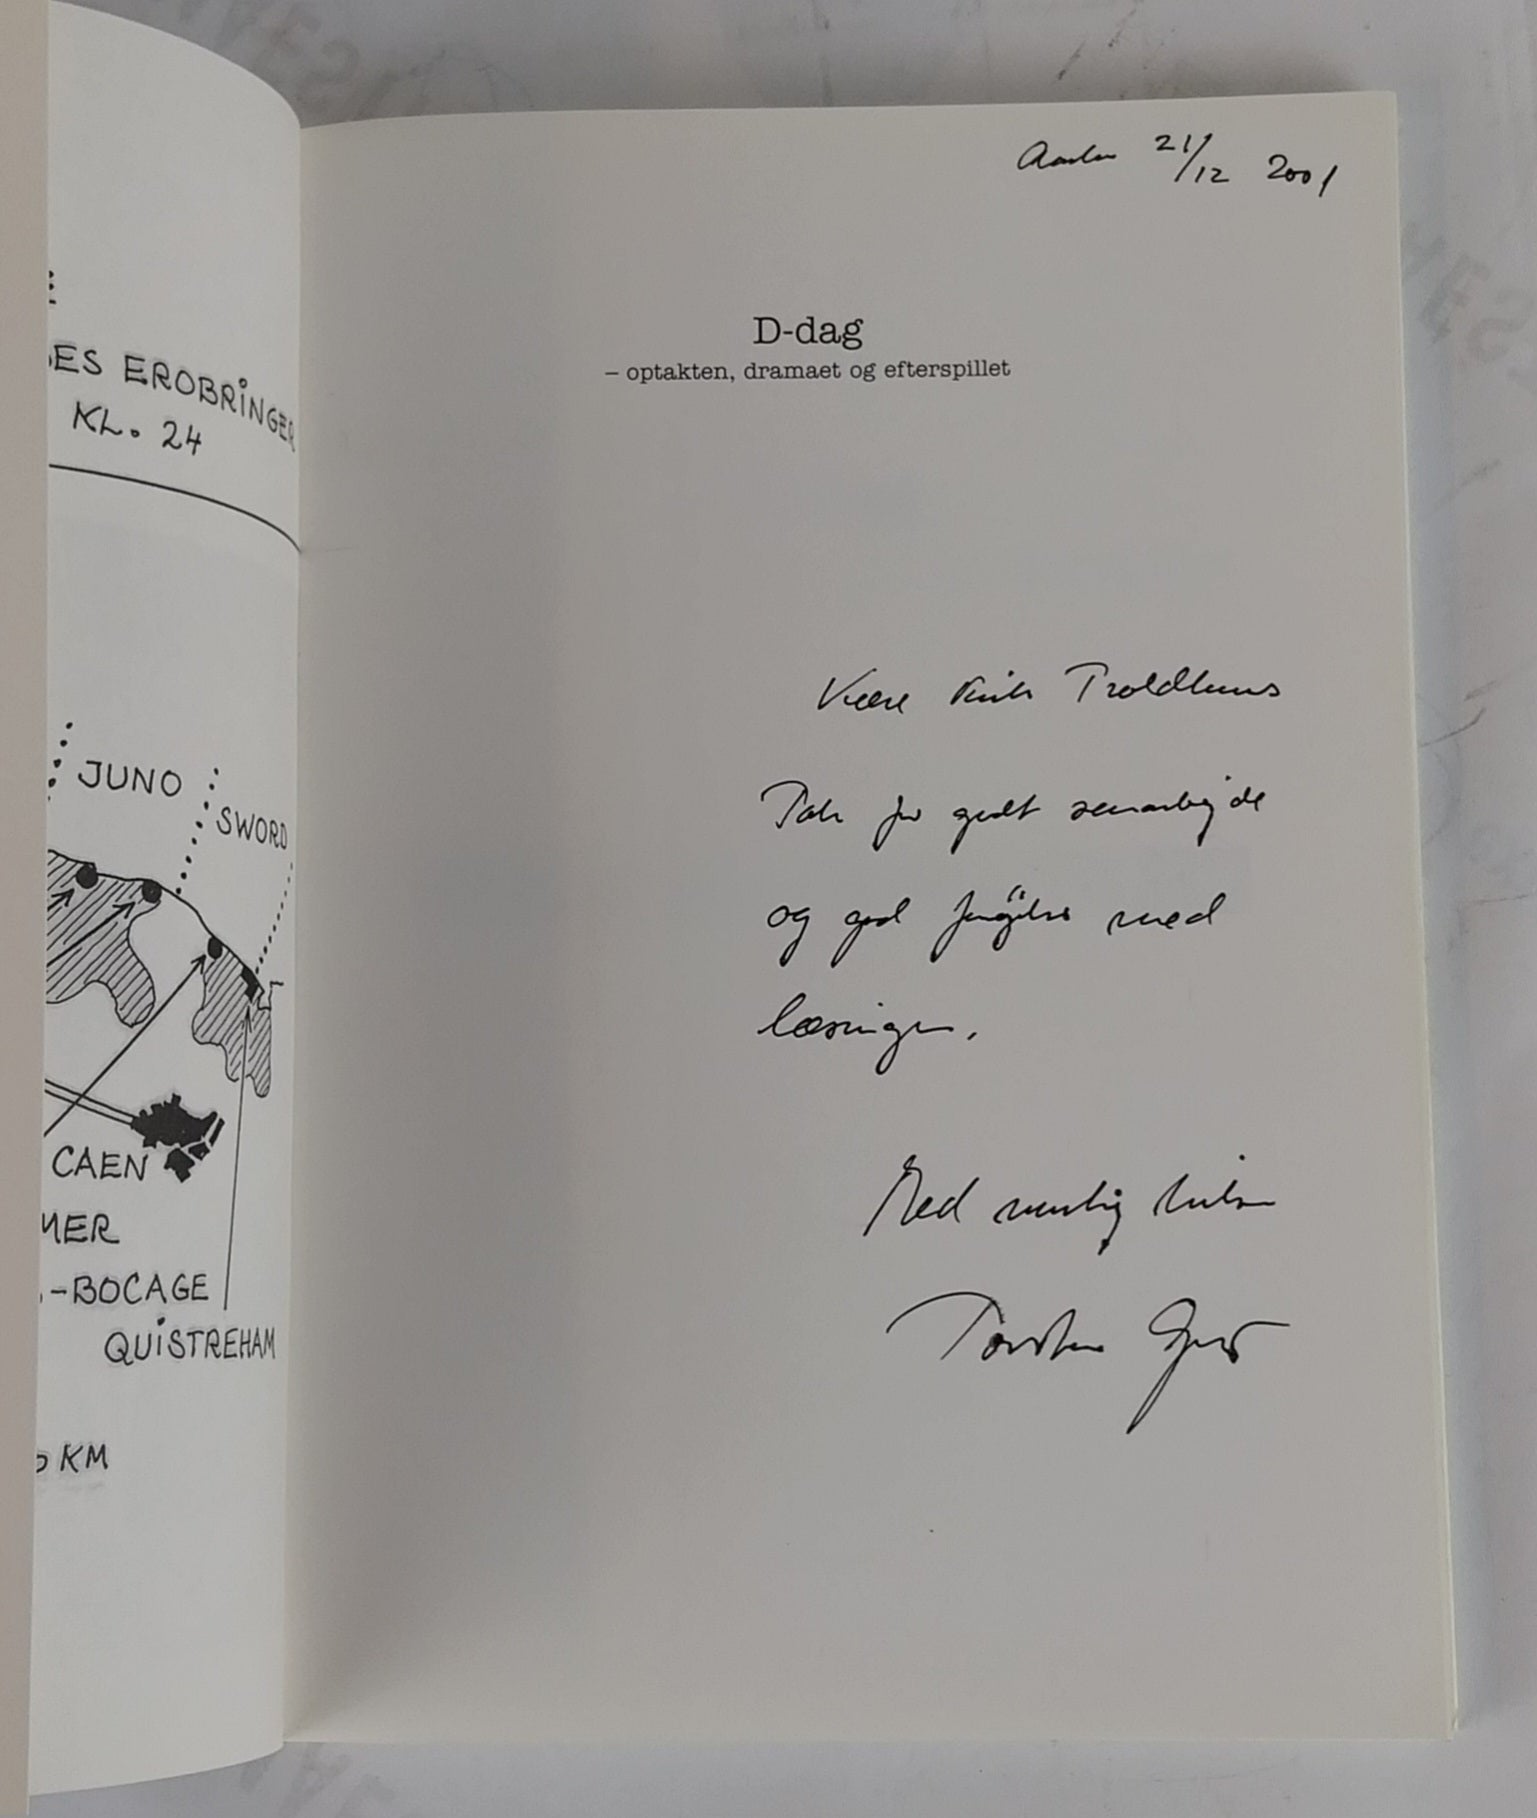 ES EROBRINGER
KL. 24
JUNO
SWORD
CAEN
MER
-BOCAGE
QUISTREHAM
KM
21/12 2001
D-dag
– optakten, dramaet og efterspillet
Kære Troldhuus
Tak for godt samarbejde
og god fornøjelse med
læsningen.
Med venlig hilsen
Torsten